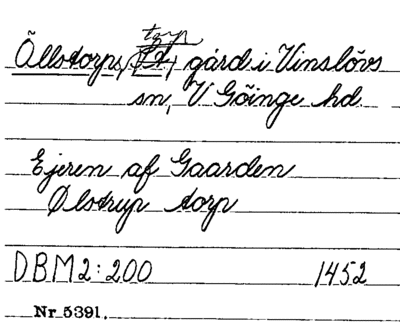 torp
Öllstorps, gård i Vinslövs
sn, V Göinge hd.
Ejeren af Gaarden
Ølstrup torp
DBM 2: 200 1452
Nr 5391.